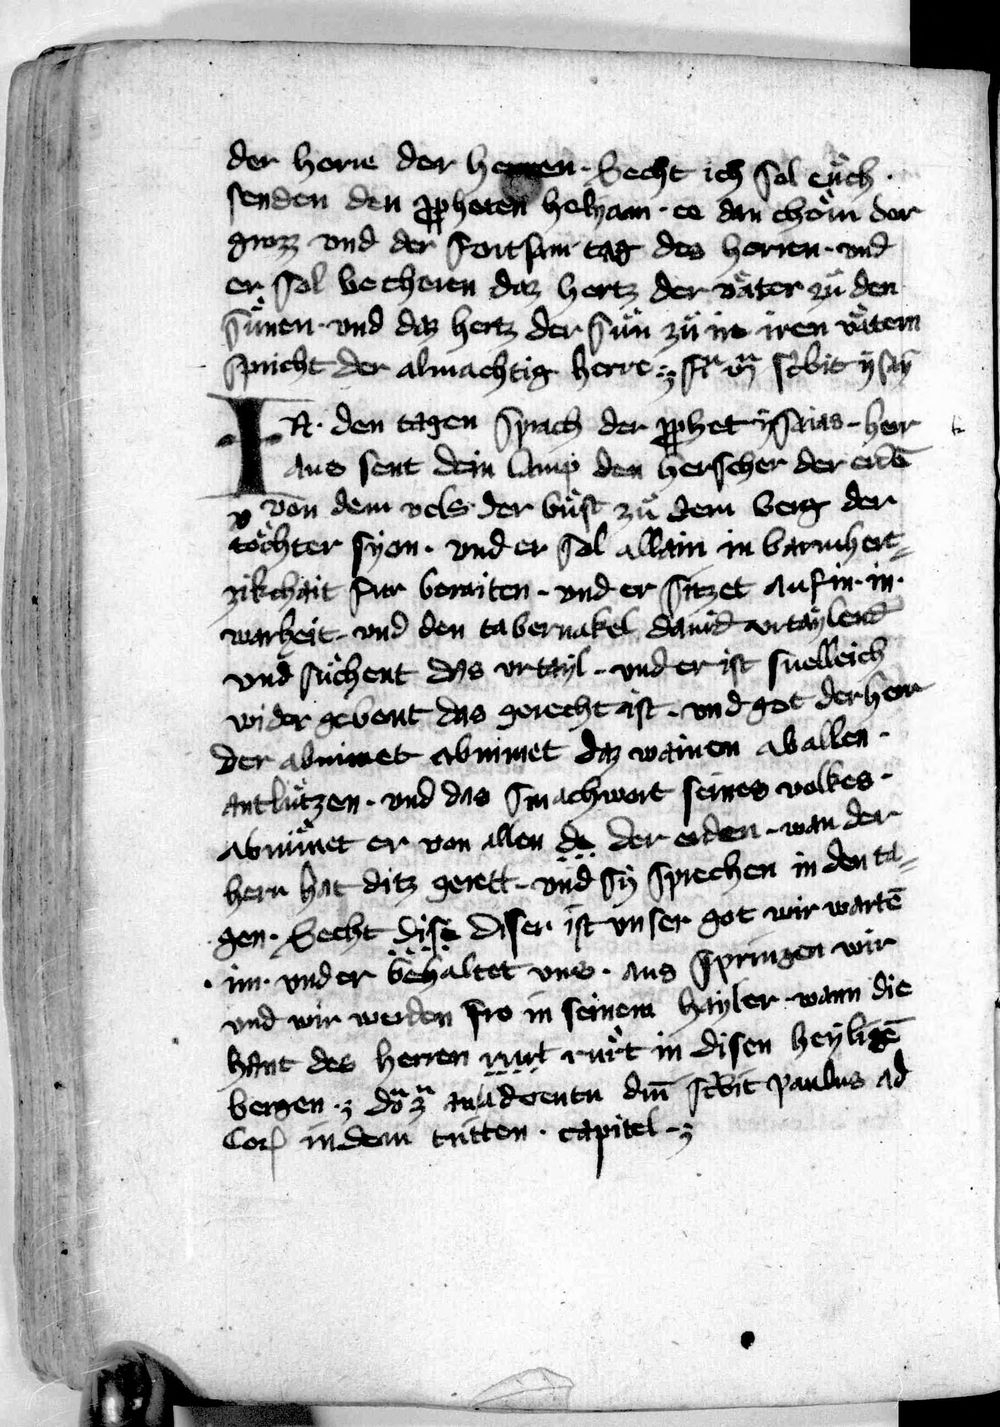 der herre der herren · Secht ich sol euͤch ·
senden den ꝓpheten helyam · ee dan choͤm der
grozz vnd der fortsam tag des herren · vnd
er sol becheren daz hertz der vaͤter zuͤ den
suͤnen · vnd daz hertz der suͤn zuͤ ire iren vaͤtern
spricht der almachtig herre
IN · den tagen sprach der ꝓphet ysaias · herr
aus sent dein lamp den herscher der erdē
von dem vels · der wuͤst zuͤ dem berg der
toͤchter syon · vnd er sol allain in barmhert⸗
zikchait fur beraiten · vnd er sitzet auf in · in ·
warheit · vnd den tabernakel dauid vrtaylend
vnd suͤchent das vrtayl · vnd er ist snelleich
wider gebent das gerecht ist · vnd got der herr
der abnimet abnimet daz wainen ab allen ·
antluͤtzen · vnd das smachwort seines volkes ·
abnimet er von allen de der erden · wan der
herr hat ditz gerett · vnd sy sprechen in den ta⸗
gen · Secht dise diser ist vnser got wir wartē
im · vnd er behaltet vns · aus springen wir
vnd wir werden fro in seinem hayler · wann die
hant des herren rurt ruͤrt in disen heyligē
bergen · aduentu dnī scͥbit paulus ad
Cor in dem tritten · capitel ·